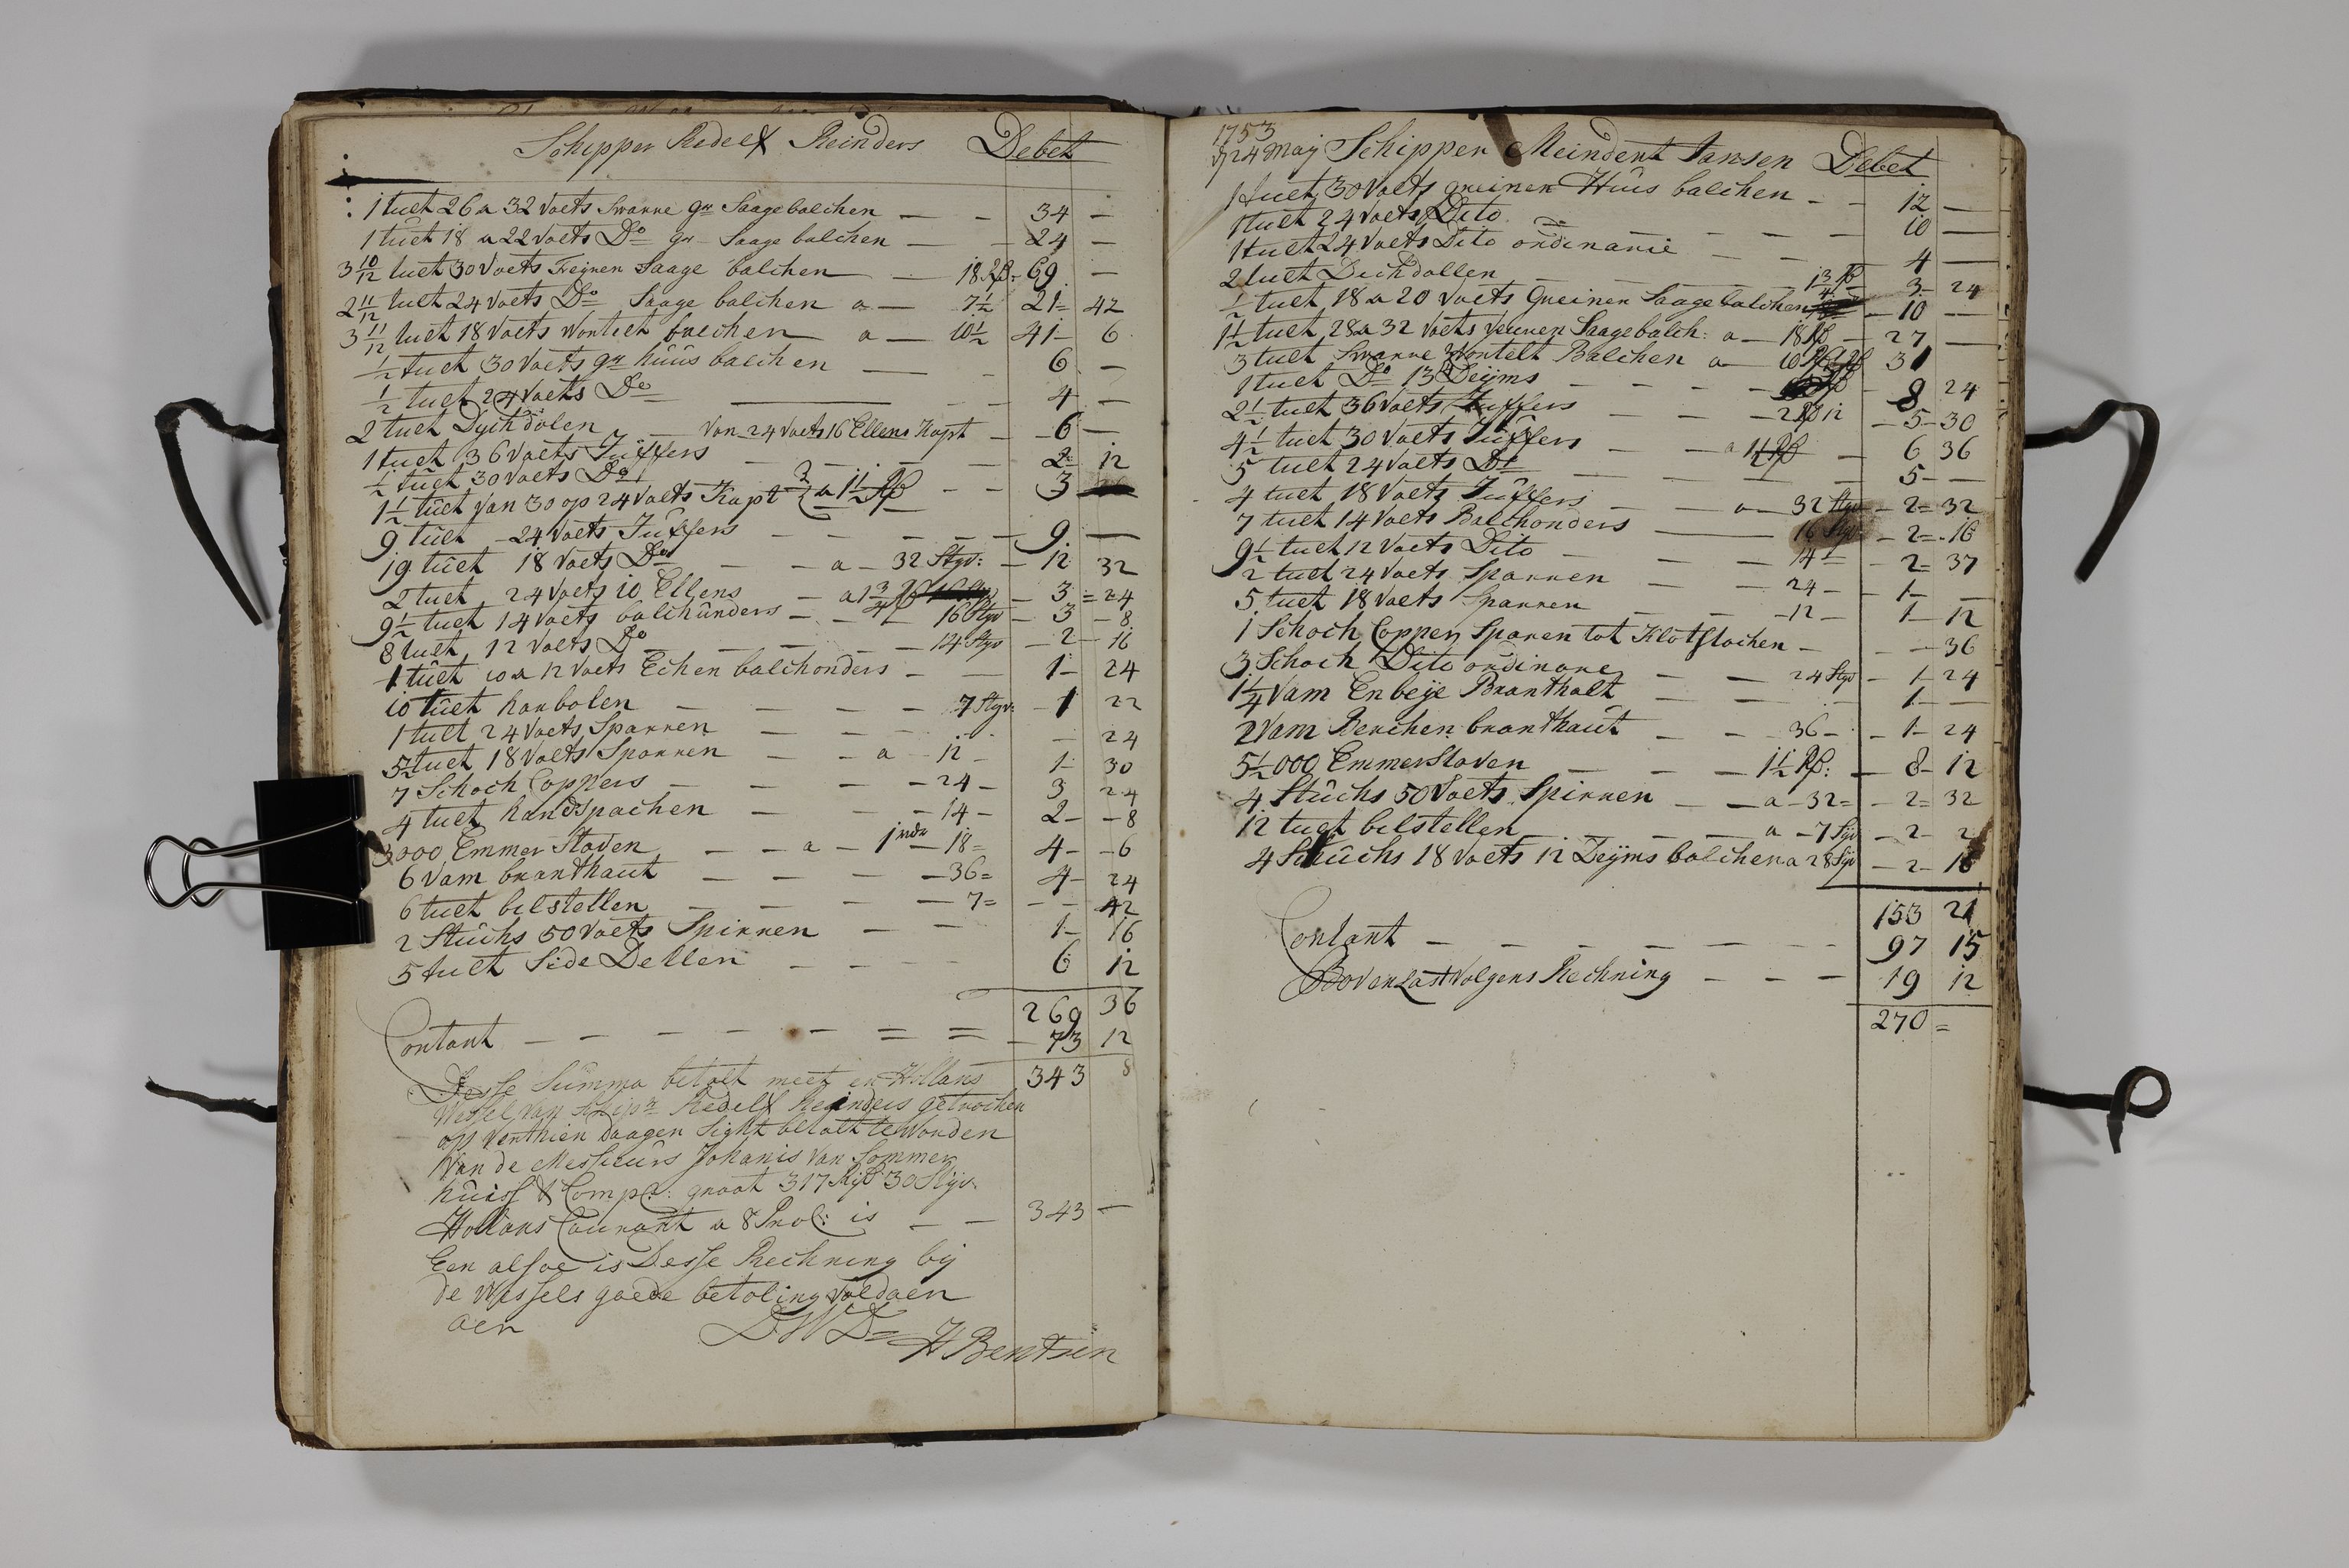 Schipper Redelf Reinders Debet
1 tuet 26 a 32 Voets Swarre gr Saagebalchen — - 34 -
1 tuet 18 a 22 Voets Do gr Saage balchen — - 24 -
3 10/12 tuet 30 Voets Freinen Saage balchen — 18 Rß: 69 -
2 11/12 tuet 24 Voets Do Saage balchen a — 7 1/2 21 = 42
3 11/12 tuet 18 Voets Wontelt balchen a — 10 1/2 41 - 6
1/2 tuet 30 Voets gr huus balchen — - 6 -
1/2 tuet 24 Voets Do — - - 4 -
2 tuet Dychdolen - Van 24 Voets 16 Ellens Kapt - 6 -
1 tuet 36 Voets Juffers - - - 2 = 12
1/2 tuet 30 Voets Do
1 1/2 tuet Van 30 op 24 Voets Kapt 2 a 1 1/2 Rß - - 3
9 tuet - 24 Voets Juffers - - - - 9 -
19 tuet 18 Voets Do - - a - 32 Styv: - 12 32
2 tuet 24 Voets 10 Ellens - a 1 3/4 Rß - 3 = 24
9 1/2 tuet 14 Voets balchunders - - - 16 Styv - 3 - 8
8 tuet 12 Voets Do - - - - 14 Styv - 2 - 16
1 tuet 10 a 12 Voets Echen balchonders - — 1 - 24
10 tuet hanbolen — - - - 7 Styv: - 1 22
1 tuet 24 Voets Sparren - - - - 24
5 1/2 tuet 18 Voets Sparren - - a - 12 - 1 - 30
7 Schoch Coppers - - - - 24 - 3 24
4 tuet handspachen - - - - 14 - 2 - - 8
3000 Emmer Staven - - a - 1 - 18 = 4 - - 6
6 Vam branthaut - - - - 36 = 4 - 24
6 tuet bilstellen - - - - 7 = - - 42
2 Stuchs 50 Voets Spirren - - 1 - 16
5 tuet Side Dellen - - - - 6 12
269 36
Contant - - - - - = = - 73 12
Desse Summa betalt meet en Hollans 343 8
Wessel Van Schipr Redelf Reinders getrochen
op Verthien Daagen Sight betalt te Worden
Van de Messieurs Johanis Van Sommer
huise & Comp: groat 317 Rß 30 Styv:
Hollans Courant a 8 Proc: is — - 343 -
Een alsoe is Desse Rechning bij
de Wessels goede betoling Voldaen
aen DWD= H Bentsin
1753
D 24 Maij Schipper Meindert Jansen Debet
1 tuet 30 Voets greinen Huus balchen - - 12 —
1 tuet 24 Voets Dito - - - 10 —
1 tuet 24 Voets Dito ordinarie - - 4 —
2 tuet Dichdollen - - - 1 3/4 Rß 3 - 24
1/2 tuet 18 a 20 Voets Greinen Saagebalchen - 10 —
1 1/2 tuet 28 a 32 Voets Veuren Saagebalch: a - 18 Rß - 27 —
3 tuet Swarre Wontelt Balchen a - 10 31
1 tuet Do 13 Deijms - - - 8 24
2 1/2 tuet 36 Voets Juffers - - - 2 Rß 12 - 5 - 30
4 1/2 tuet 30 Voets Juffers - - a 1 1/2 Rß — 6 36
5 tuet 24 Voets Do - - - - 5 - —
4 tuet 18 Voets Juffers - - a - 32 Styv - 2 = 32
7 tuet 14 Voets Balchonders — 16 Styv - 2 = 16
9 1/2 tuet 12 Voets Dito - - - 14 - 2 = 37
2 tuet 24 Voets Sparren — - 24 - - 1 - —
5 tuet 18 Voets Sparren - - - 12 - 1 - 12
1 Schoch Coppen Sparen tot Klotstochen - - - 36
3 Schoch Dito ordinare - - 24 Styv - 1 - 24
1 1/4 Vam Enbeije Branthalt - - - 1 - —
2 Vam Berchen branthaut - - - 36 - - 1 - 24
5 1/2 000 Emmerstaven - - - 1 1/2 Rß: - 8 - 12
4 Stuchs 50 Voets Spirren — - a - 32 = - 2 = 32
12 tuet bilstellen - - - a - 7 Sty - 2 -
4 Stuchs 18 Voets 12 Deijms balchen a 28 Sty - 2 - 16
153 21
Contant - - - - - - 97 15
Boven Last Volgens Rechning - - - 19 12
270 =